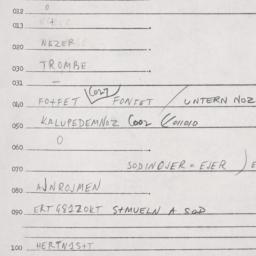 012 0
013
020 NEZER
030 TROMBE
031 —
040 FOTFET CO27 FONTET / UNTERN NOZ
050 KALUPEDEMNOZ C002 011010
060 0
070 SODINOJER = EJER ) E
080 AJNROJMEN
090 ERT G812OKT S+MUELN A SOD
100 HERTNIS+T